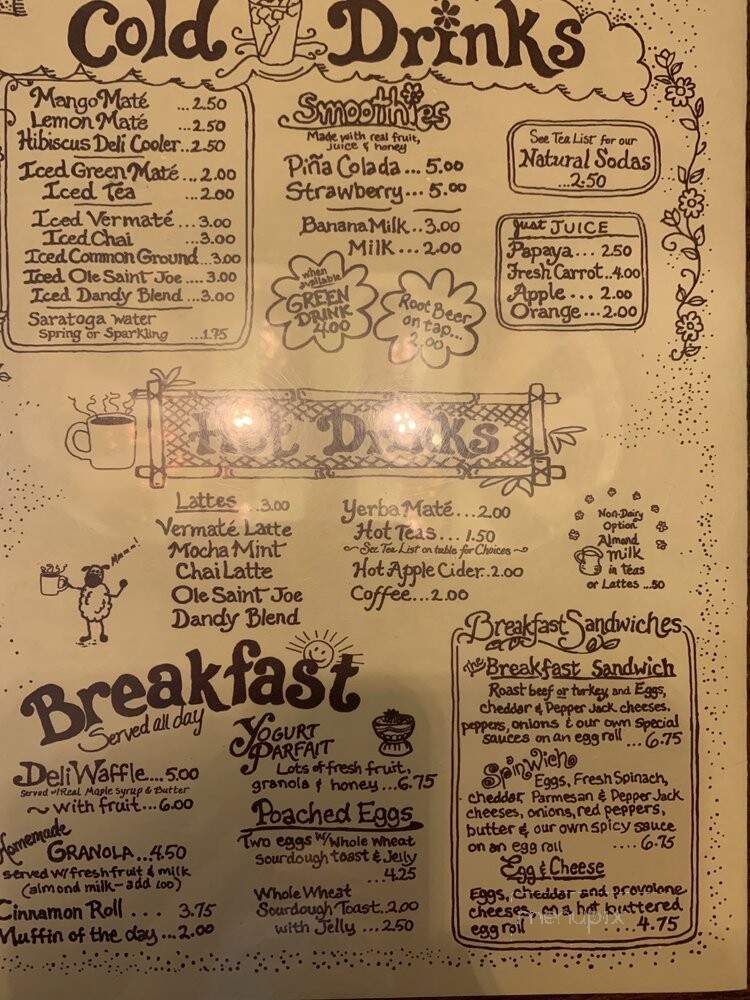 Cold Drinks
Mango Maté ...2.50
Lemon Maté ...2.50
Hibiscus Deli Cooler..2.50
Iced Green Maté ...2.00
Iced Tea ...2.00
Iced Vermaté ...3.00
Iced Chai ...3.00
Iced Common Ground...3.00
Iced Ole Saint Joe ....3.00
Iced Dandy Blend ...3.00
Saratoga water
Spring or Sparkling ...1.75
Smoothies
Made with real fruit,
juice & honey
Piña Colada... 5.00
Strawberry... 5.00
Banana Milk..3.00
Milk...2.00
when
available
GREEN
DRINK
4.00
Root Beer
on tap...
2.00
See Tea List for our
Natural Sodas
...2.50
Just JUICE
Papaya... 2.50
Fresh Carrot..4.00
Apple ... 2.00
Orange ...2.00
Hot Drinks
Lattes ..3.00
Vermaté Latte
Mocha Mint
Chai Latte
Ole Saint Joe
Dandy Blend
Yerba Maté...2.00
Hot Teas... 1.50
~See Tea List on table for Choices~
Hot Apple Cider..2.00
Coffee...2.00
Non-Dairy
Option
Almond
milk
in teas
or Lattes ..50
Mmm...!
Breakfast
Served all day
Deli Waffle...5.00
Served w/Real Maple Syrup & Butter
~ with fruit...6.00
Homemade
GRANOLA...4.50
served w/fresh fruit & milk
(almond milk-add 1.00)
Cinnamon Roll ... 3.75
Muffin of the day...2.00
YOGURT
PARFAIT
Lots of fresh fruit,
granola & honey ...6.75
Poached Eggs
Two eggs w/Whole Wheat
Sourdough toast & Jelly
...4.25
Whole Wheat
Sourdough Toast..2.00
with Jelly ...2.50
Breakfast Sandwiches
The Breakfast Sandwich
Roast beef or turkey, and Eggs,
cheddar & Pepper Jack cheeses,
peppers, onions & our own special
sauces on an egg roll ...6.75
Spinwich
Eggs, Fresh Spinach,
cheddar, Parmesan & Pepper Jack
cheeses, onions, red peppers,
butter & our own spicy sauce
on an egg roll ....6.75
Egg & Cheese
Eggs, cheddar and provolone
cheeses, on a hot buttered
egg roll 4.75
menupix